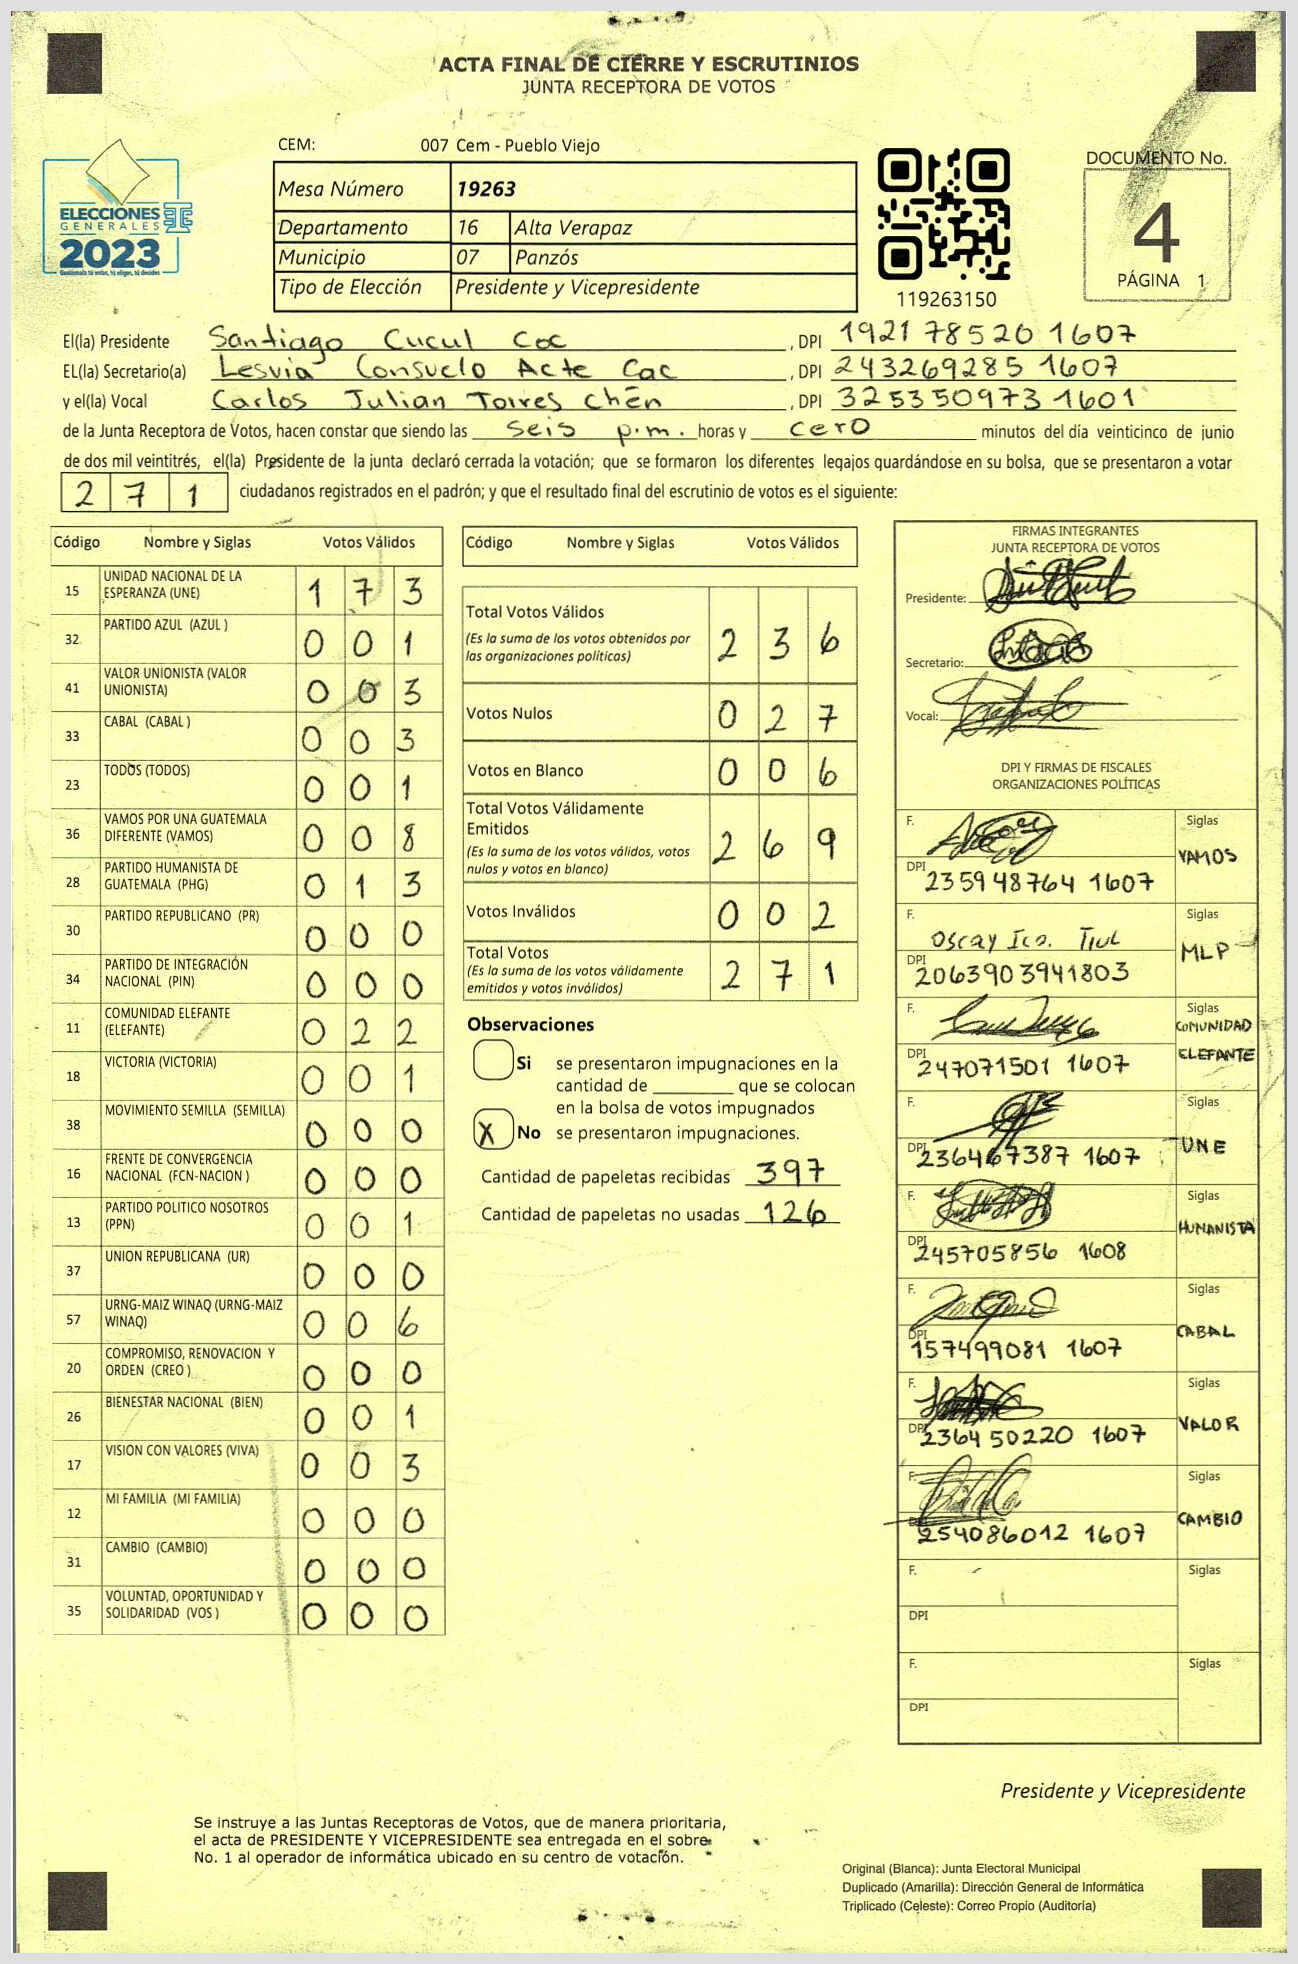 ACTA FINAL DE CIERRE Y ESCRUTINIOS
JUNTA RECEPTORA DE VOTOS
CEM: 007 Cem - Pueblo Viejo
ELECCIONES
GENERALES
2023
Guatemala tú votas, tú eliges, tú decides
Mesa Número 19263
Departamento 16 Alta Verapaz
Municipio 07 Panzós
Tipo de Elección Presidente y Vicepresidente
119263150
DOCUMENTO No.
4
PÁGINA 1
El(la) Presidente Santiago Cucul Coc , DPI 1921 78520 1607
EL(la) Secretario(a) Lesvia Consuelo Acte Cac , DPI 243269285 1607
y el(la) Vocal Carlos Julian Torres Chén , DPI 325350973 1601
de la Junta Receptora de Votos, hacen constar que siendo las seis p.m. horas y cero minutos del día veinticinco de junio
de dos mil veintitrés, el(la) Presidente de la junta declaró cerrada la votación; que se formaron los diferentes legajos guardándose en su bolsa, que se presentaron a votar
2 7 1 ciudadanos registrados en el padrón; y que el resultado final del escrutinio de votos es el siguiente:
Código Nombre y Siglas Votos Válidos
15 UNIDAD NACIONAL DE LA ESPERANZA (UNE) 1 7 3
32 PARTIDO AZUL (AZUL ) 0 0 1
41 VALOR UNIONISTA (VALOR UNIONISTA) 0 0 3
33 CABAL (CABAL ) 0 0 3
23 TODOS (TODOS) 0 0 1
36 VAMOS POR UNA GUATEMALA DIFERENTE (VAMOS) 0 0 8
28 PARTIDO HUMANISTA DE GUATEMALA (PHG) 0 1 3
30 PARTIDO REPUBLICANO (PR) 0 0 0
34 PARTIDO DE INTEGRACIÓN NACIONAL (PIN) 0 0 0
11 COMUNIDAD ELEFANTE (ELEFANTE) 0 2 2
18 VICTORIA (VICTORIA) 0 0 1
38 MOVIMIENTO SEMILLA (SEMILLA) 0 0 0
16 FRENTE DE CONVERGENCIA NACIONAL (FCN-NACION ) 0 0 0
13 PARTIDO POLITICO NOSOTROS (PPN) 0 0 1
37 UNION REPUBLICANA (UR) 0 0 0
57 URNG-MAIZ WINAQ (URNG-MAIZ WINAQ) 0 0 6
20 COMPROMISO, RENOVACION Y ORDEN (CREO ) 0 0 0
26 BIENESTAR NACIONAL (BIEN) 0 0 1
17 VISION CON VALORES (VIVA) 0 0 3
12 MI FAMILIA (MI FAMILIA) 0 0 0
31 CAMBIO (CAMBIO) 0 0 0
35 VOLUNTAD, OPORTUNIDAD Y SOLIDARIDAD (VOS ) 0 0 0
Código Nombre y Siglas Votos Válidos
Total Votos Válidos 2 3 6
(Es la suma de los votos obtenidos por
las organizaciones políticas)
Votos Nulos 0 2 7
Votos en Blanco 0 0 6
Total Votos Válidamente
Emitidos 2 6 9
(Es la suma de los votos válidos, votos
nulos y votos en blanco)
Votos Inválidos 0 0 2
Total Votos 2 7 1
(Es la suma de los votos válidamente
emitidos y votos inválidos)
Observaciones
Si se presentaron impugnaciones en la
cantidad de ________ que se colocan
en la bolsa de votos impugnados
X No se presentaron impugnaciones.
Cantidad de papeletas recibidas 397
Cantidad de papeletas no usadas 126
FIRMAS INTEGRANTES
JUNTA RECEPTORA DE VOTOS
Presidente:
Secretario:
Vocal:
DPI Y FIRMAS DE FISCALES
ORGANIZACIONES POLÍTICAS
F. Siglas
VAMOS
DPI 235948764 1607
F. Oscar Ico. Tiul Siglas
MLP
DPI 2063903941803
F. Siglas
COMUNIDAD
ELEFANTE
DPI 247071501 1607
F. Siglas
UNE
DPI 236467387 1607
F. Siglas
HUMANISTA
DPI 245705856 1608
F. Siglas
CABAL
DPI 157499081 1607
F. Siglas
VALOR
DPI 2364 50220 1607
F. Siglas
CAMBIO
DPI 254086012 1607
F. Siglas
DPI
F. Siglas
DPI
Presidente y Vicepresidente
Se instruye a las Juntas Receptoras de Votos, que de manera prioritaria,
el acta de PRESIDENTE Y VICEPRESIDENTE sea entregada en el sobre
No. 1 al operador de informática ubicado en su centro de votación.
Original (Blanca): Junta Electoral Municipal
Duplicado (Amarilla): Dirección General de Informática
Triplicado (Celeste): Correo Propio (Auditoría)